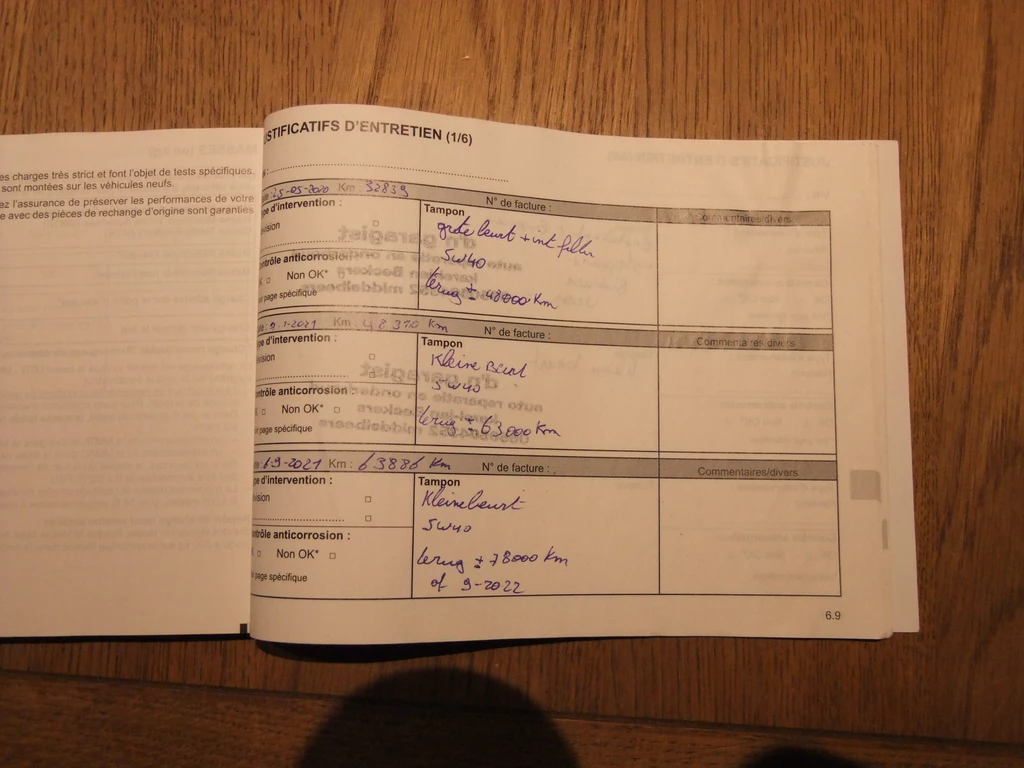 es charges très strict et font l'objet de tests spécifiques.
sont montées sur les véhicules neufs.
ez l'assurance de préserver les performances de votre
e avec des pièces de rechange d'origine sont garanties
STIFICATIFS D'ENTRETIEN (1/6)
25-05-2020 Km : 32839 N° de facture : Commentaires/divers
pe d'intervention :
vision
Tampon
grote beurt + int filter
5W40
terug ± 48000 Km
ontrôle anticorrosion :
Non OK*
page spécifique
1-2021 Km : 48310 Km N° de facture : Commentaires/divers
pe d'intervention :
vision
Tampon
Kleine Beurt
5W40
terug ± 63000 Km
ontrôle anticorrosion :
Non OK*
page spécifique
9-2021 Km : 63886 Km N° de facture : Commentaires/divers
pe d'intervention :
vision
Tampon
Kleine beurt
5W40
terug ± 78000 Km
of 9-2022
ontrôle anticorrosion :
Non OK*
page spécifique
6.9